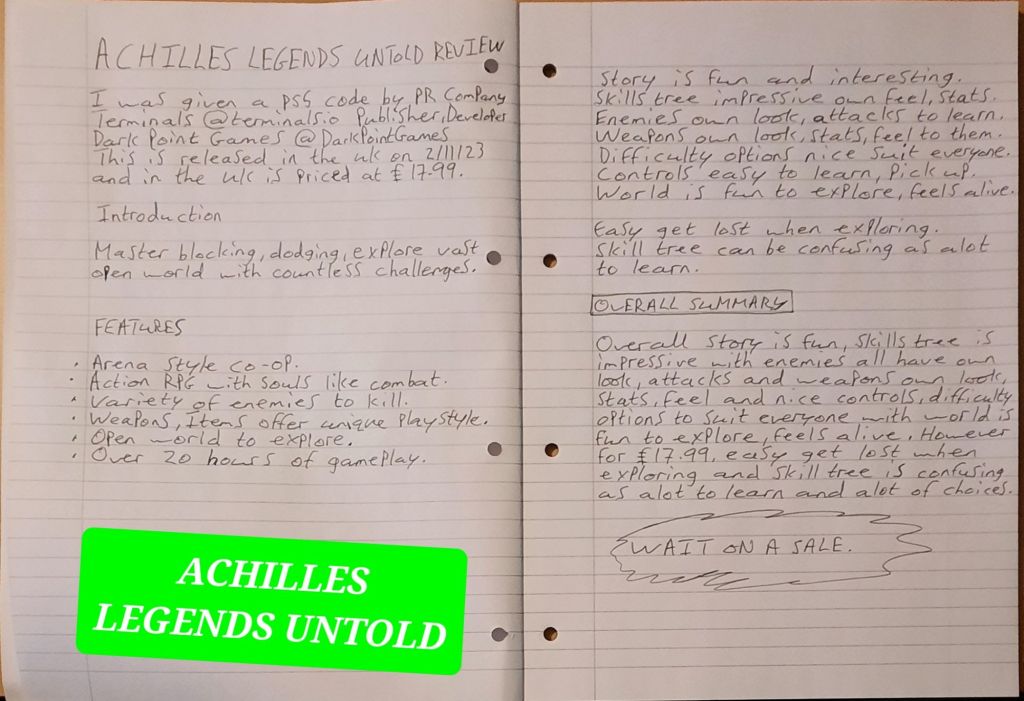 ACHILLES LEGENDS UNTOLD REVIEW
I was given a PS5 code by PR Company
Terminals @terminals.io Publisher, Developer
Dark Point Games @DarkPointGames
This is released in the uk on 2/11/23
and in the uk is priced at £17.99.
Introduction
Master blocking, dodging, explore vast
open world with countless challenges.
FEATURES
· Arena style co-op.
· Action RPG with souls like combat.
· Variety of enemies to kill.
· Weapons, Items offer unique playstyle.
· Open world to explore.
· Over 20 hours of gameplay.
ACHILLES
LEGENDS UNTOLD
Story is fun and interesting.
Skills tree impressive own feel, stats.
Enemies own look, attacks to learn.
Weapons own look, stats, feel to them.
Difficulty options nice suit everyone.
Controls easy to learn, pick up.
World is fun to explore, feels alive.
Easy get lost when exploring.
Skill tree can be confusing as alot
to learn.
OVERALL SUMMARY
Overall story is fun, skills tree is
impressive with enemies all have own
look, attacks and weapons own look,
stats, feel and nice controls, difficulty
options to suit everyone with world is
fun to explore, feels alive. However
for £17.99, easy get lost when
exploring and skill tree is confusing
as alot to learn and alot of choices.
WAIT ON A SALE.